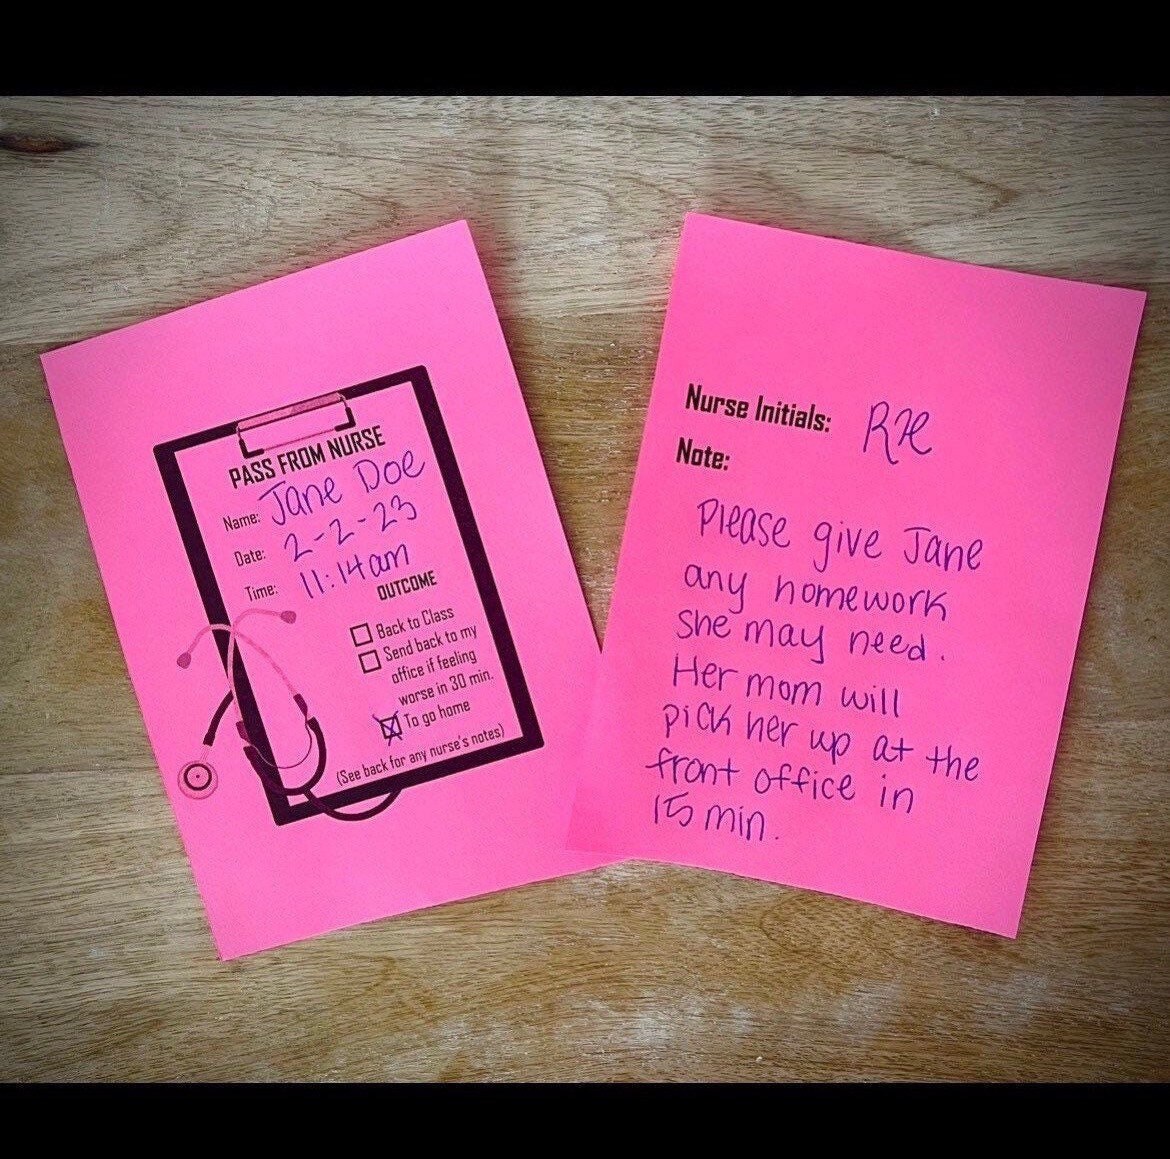 PASS FROM NURSE
Name: Jane Doe
Date: 2-2-23
Time: 11:14am
OUTCOME
Back to Class
Send back to my
office if feeling
worse in 30 min.
To go home
(See back for any nurse's notes)
Nurse Initials: RH
Note:
Please give Jane
any homework
she may need.
Her mom will
pick her up at the
front office in
15 min.